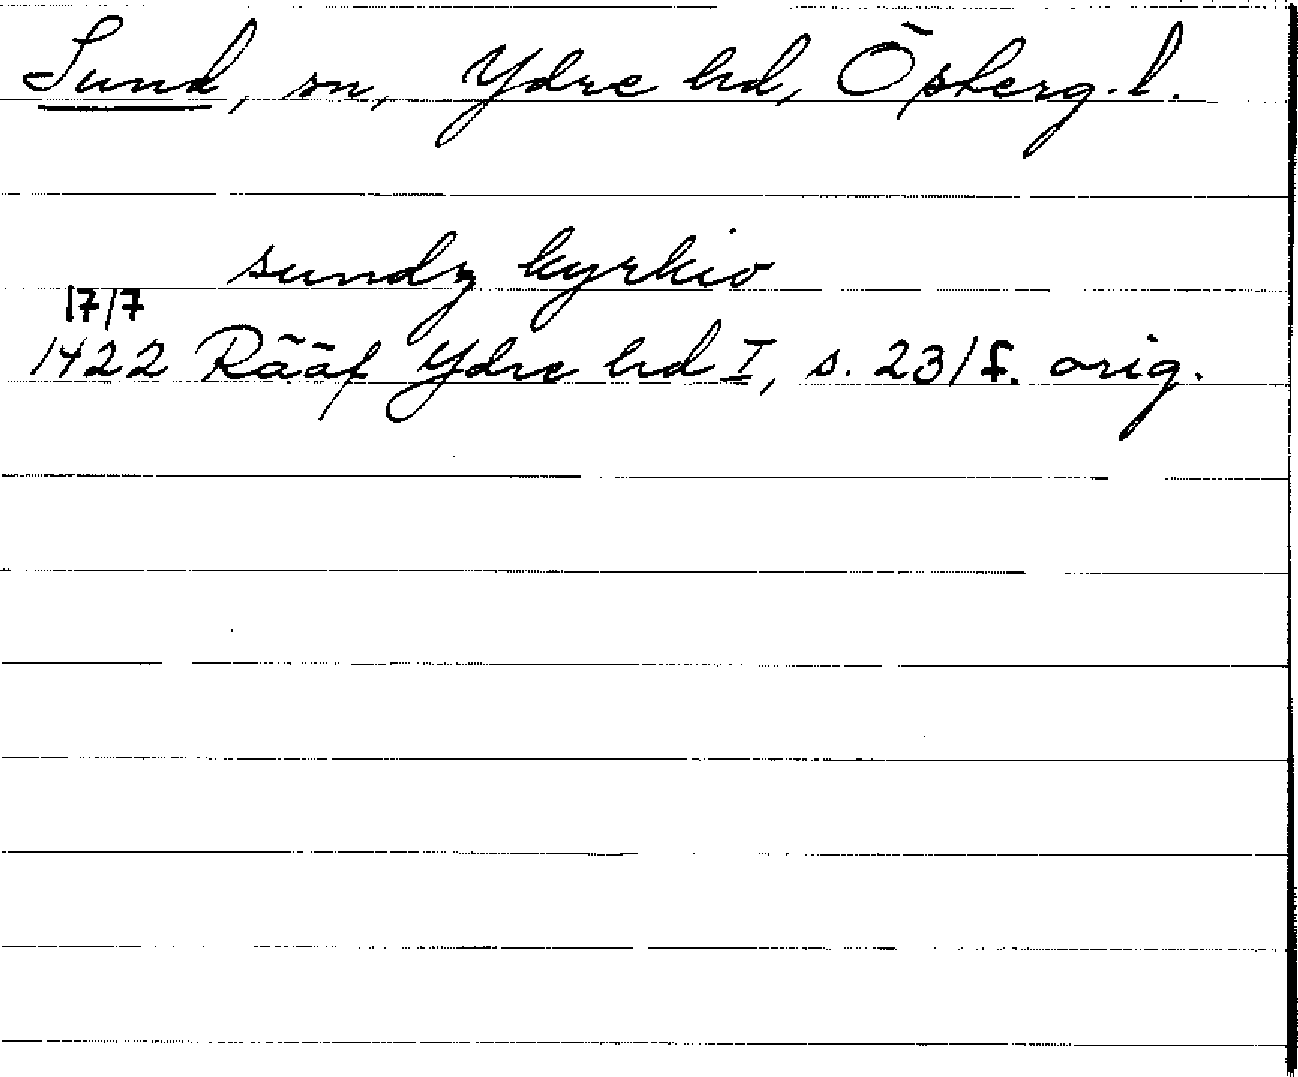 Sund, sn, Ydre hd, Österg. l.
sundz kyrkio
17/7
1422 Rääf Ydre hd I, s. 231 f. orig.